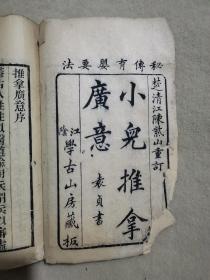 秘傳育嬰要法
楚清江陳紫山重訂
小兒推拿
廣意
袁貞書
江陰學古山房藏板
推拿廣意序